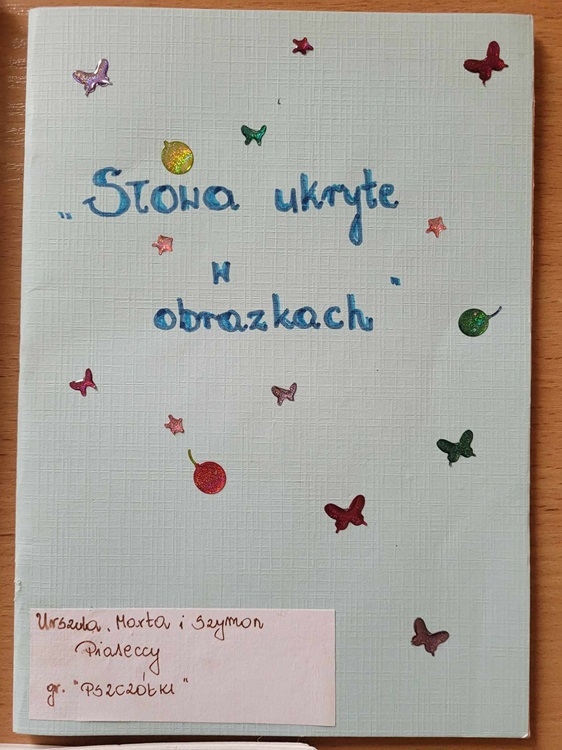 „Słowa ukryte
w
obrazkach"
Urszula, Marta i Szymon
Piałeccy
gr. "PSZCZÓŁKI"